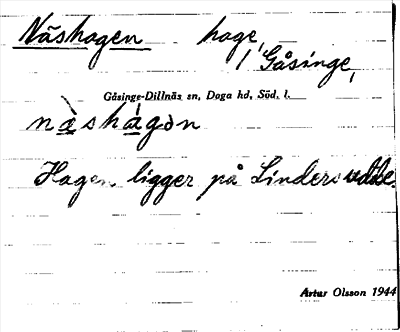 Näshagen hage,
i Gåsinge,
Gåsinge-Dillnäs sn, Daga hd, Söd. l.
nä̀shágən
Hagen ligger på Linders udde.
Artur Olsson 1944